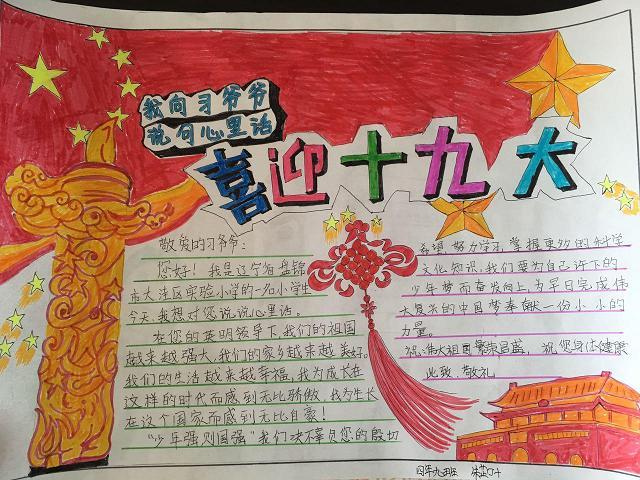 我向习爷爷
说句心里话
喜迎十九大
敬爱的习爷爷:
您好!我是辽宁省盘锦
市大洼区实验小学的一名小学生
今天我想对您说说心里话。
在您的英明领导下我们的祖国
越来越强大,我们的家乡越来越美好。
我们的生活越来越幸福,我为成长在
这样的时代而感到无比骄傲,我为生长
在这个国家而感到无比自豪!
"少年强则国强"我们决不辜负您的殷切
希望,努力学习,掌握更多的科学
文化知识,我们要为自己许下的
少年梦而奋发向上,为早日完成伟
大复兴的中国梦奉献一份小小的
力量。
祝:伟大祖国繁荣昌盛,祝您身体健康
此致 敬礼
四年九班